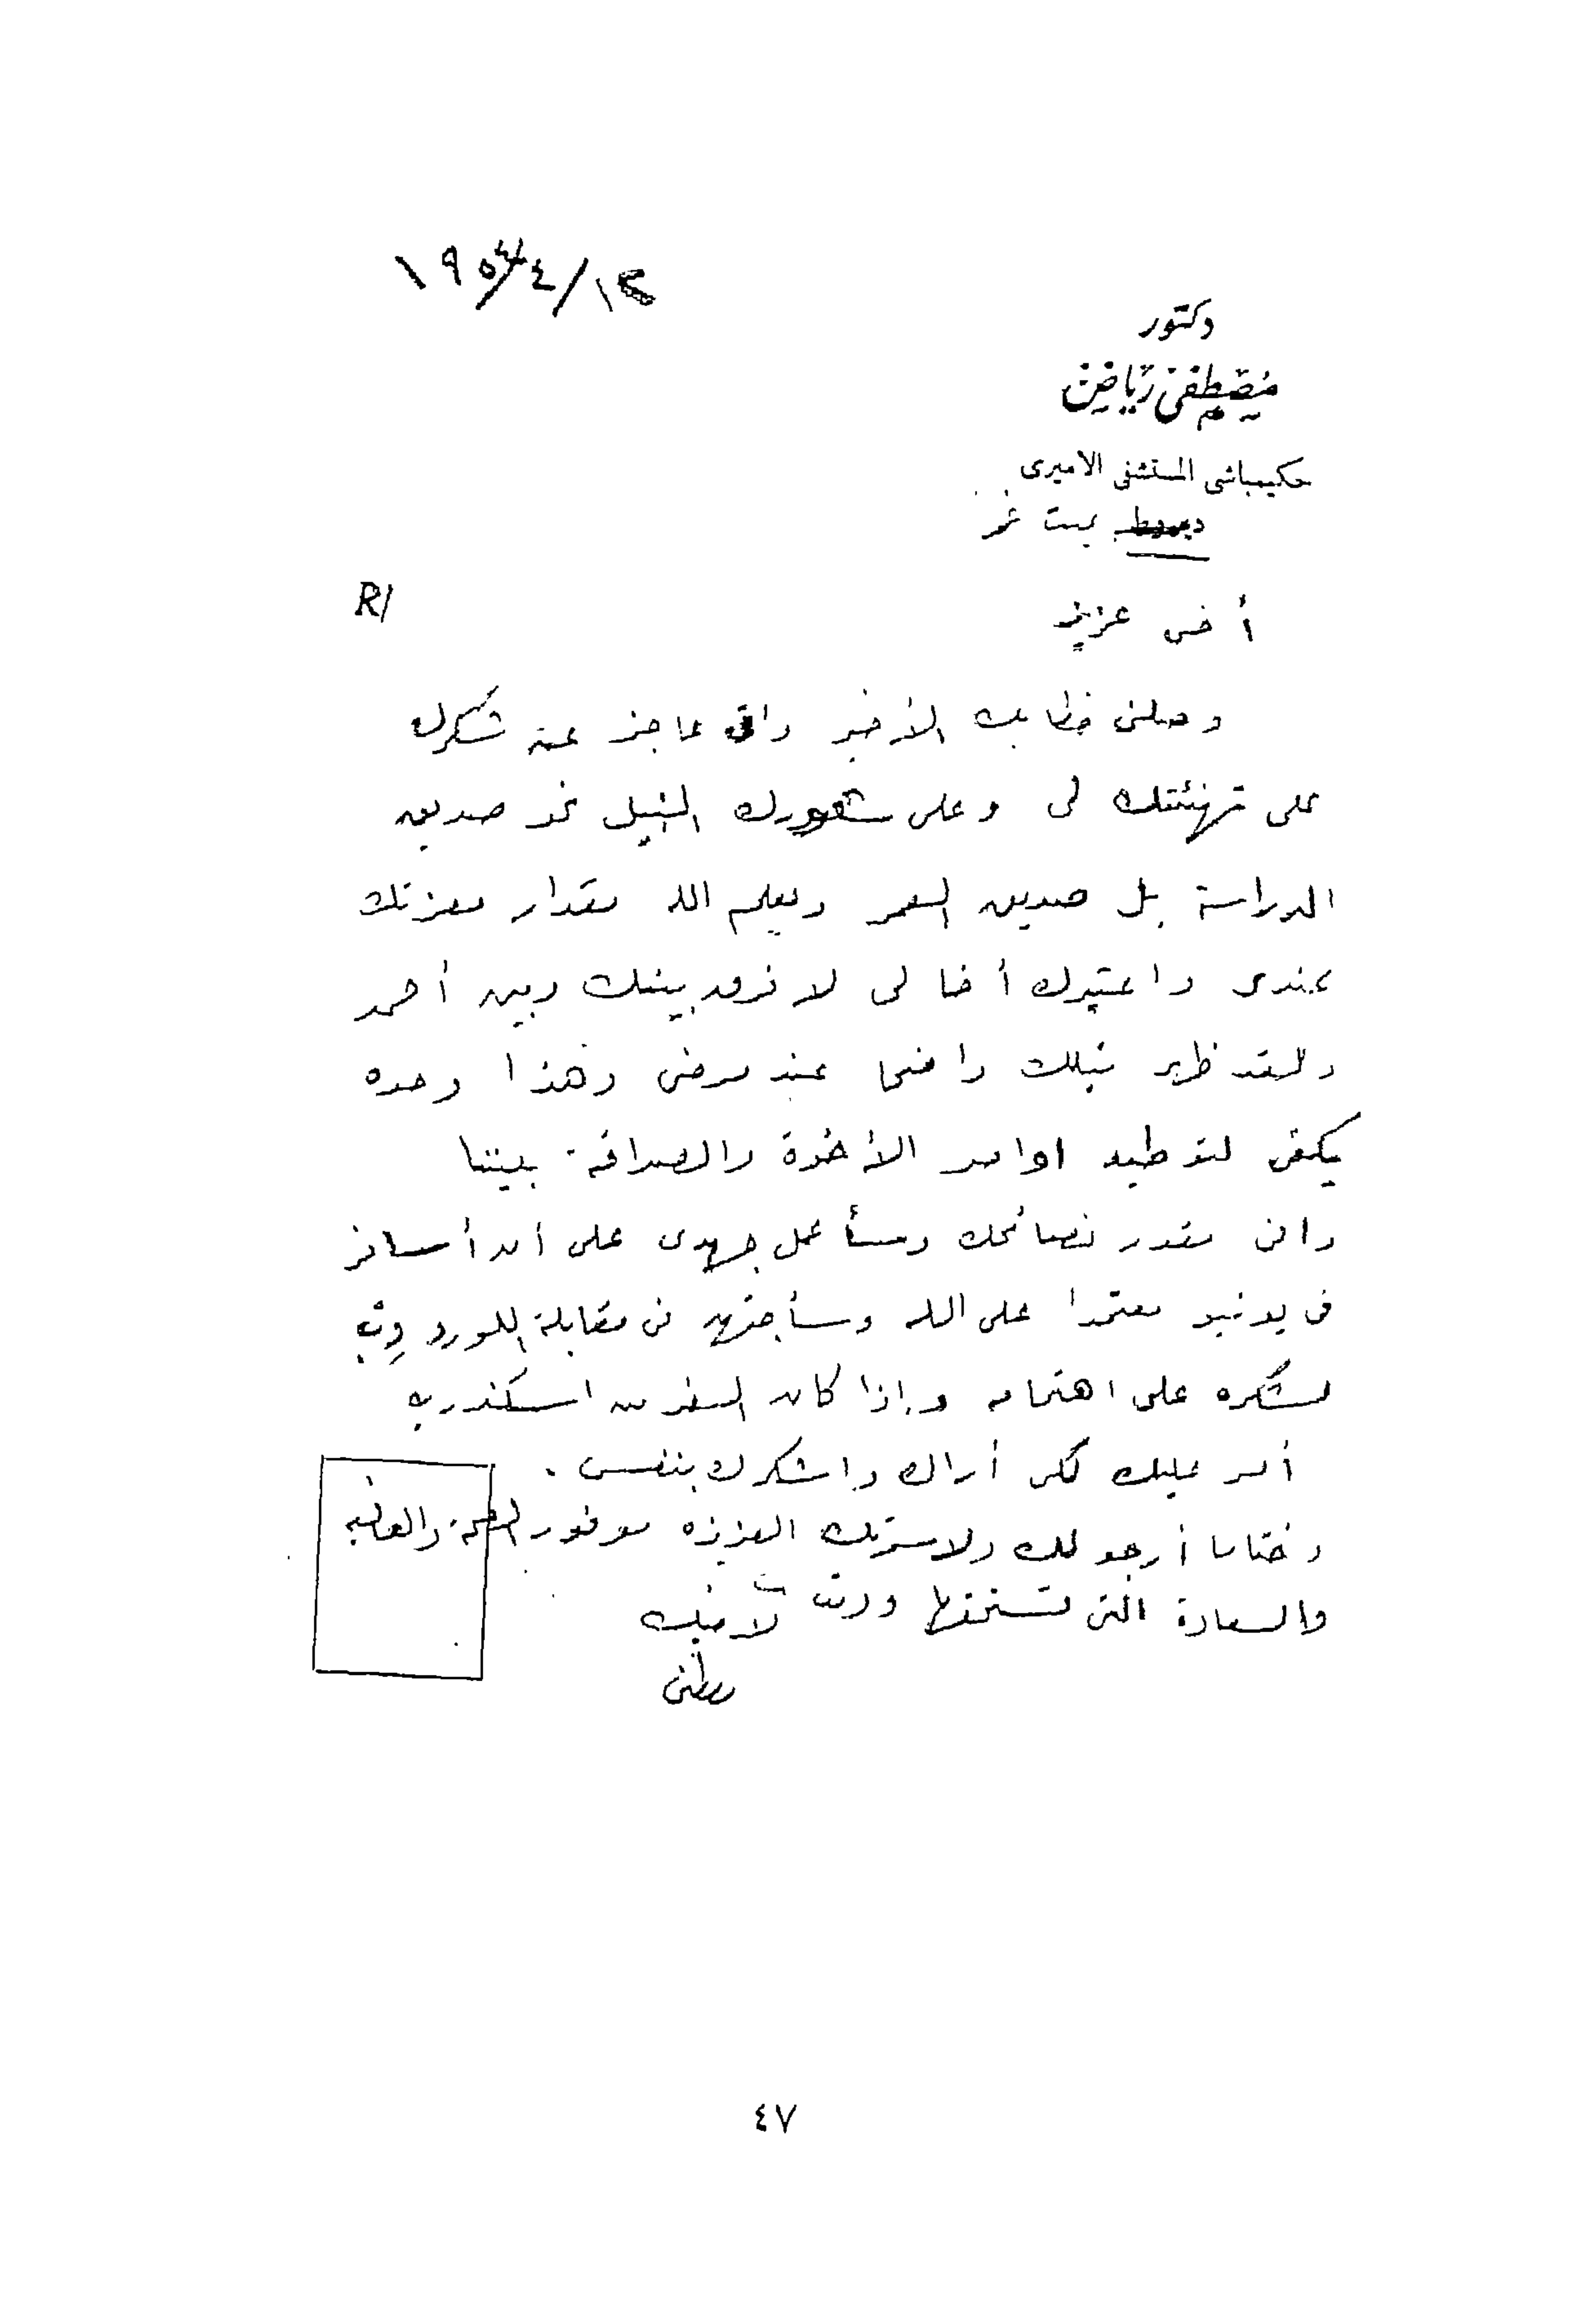 ١٢/٤/١٩٥٤
دكتور
مصطفى رياض
حكيمباشى المستشفى الاميرى
بميت غمر
R/
أخى عزيز
وصلنى خطابك الأخير وانى عاجز عن شكرك
على تهنئتك لى وعلى شعورك النبيل نحو صديق
الدراسة بل صديق العمر ويعلم الله مقدار معزتك
عندى واعتبرك أخا لى لا فرق بينك وبين أحمد
ولقد ظهر نبلك واضحا عند مرضى وهذا وحده
يكفى لتوطيد اواصر الأخوة والصداقة بيننا
وانى مقدر نصائحك وسأعمل جهدى على ان أسافر
فى يونيو معتمدا على الله وسأجتهد فى مقابلة اللورد وب
لشكره على اهتمامه وإذا كان السفر من اسكندريه
أمر عليك لكى أراك واشكرك بنفسى .
وختاما أرجو لك ولاسرتك العزيزه موفور الصحة والعافيه
والسعادة التى تستحقها ودمت لاخيك
مصطفى
٤٧